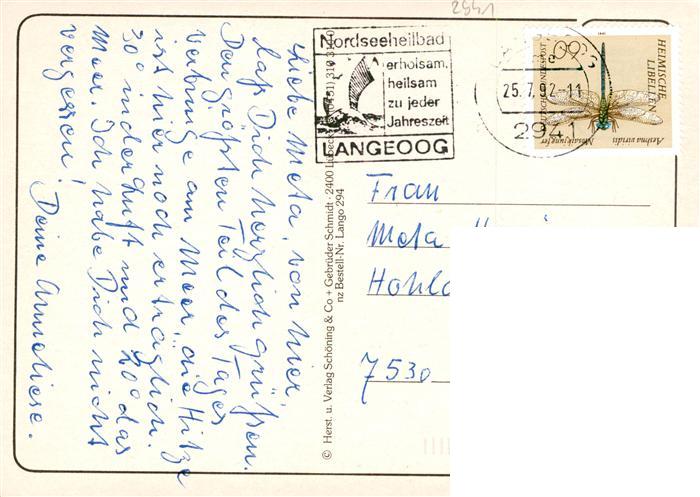 2941
Nordseeheilbad
erholsam,
heilsam
zu jeder
Jahreszeit
LANGEOOG
25.7.92-11
2941
HEIMISCHE
LIBELLEN
Aeshna viridis
Mosaikjungfer
Liebe Meta, von hier
laß Dich herzlich grüßen.
Den größten Teil des Tages
verbringe am Meer, die Hitze
ist hier noch erträglich.
30° in der Luft und 20° das
Meer. Ich habe Dich nicht
vergessen!
Deine Anneliese.
© Herst. u. Verlag Schöning & Co + Gebrüder Schmidt · 2400 Lübeck
nz Bestell-Nr. Lango 294
Frau
Meta
7530